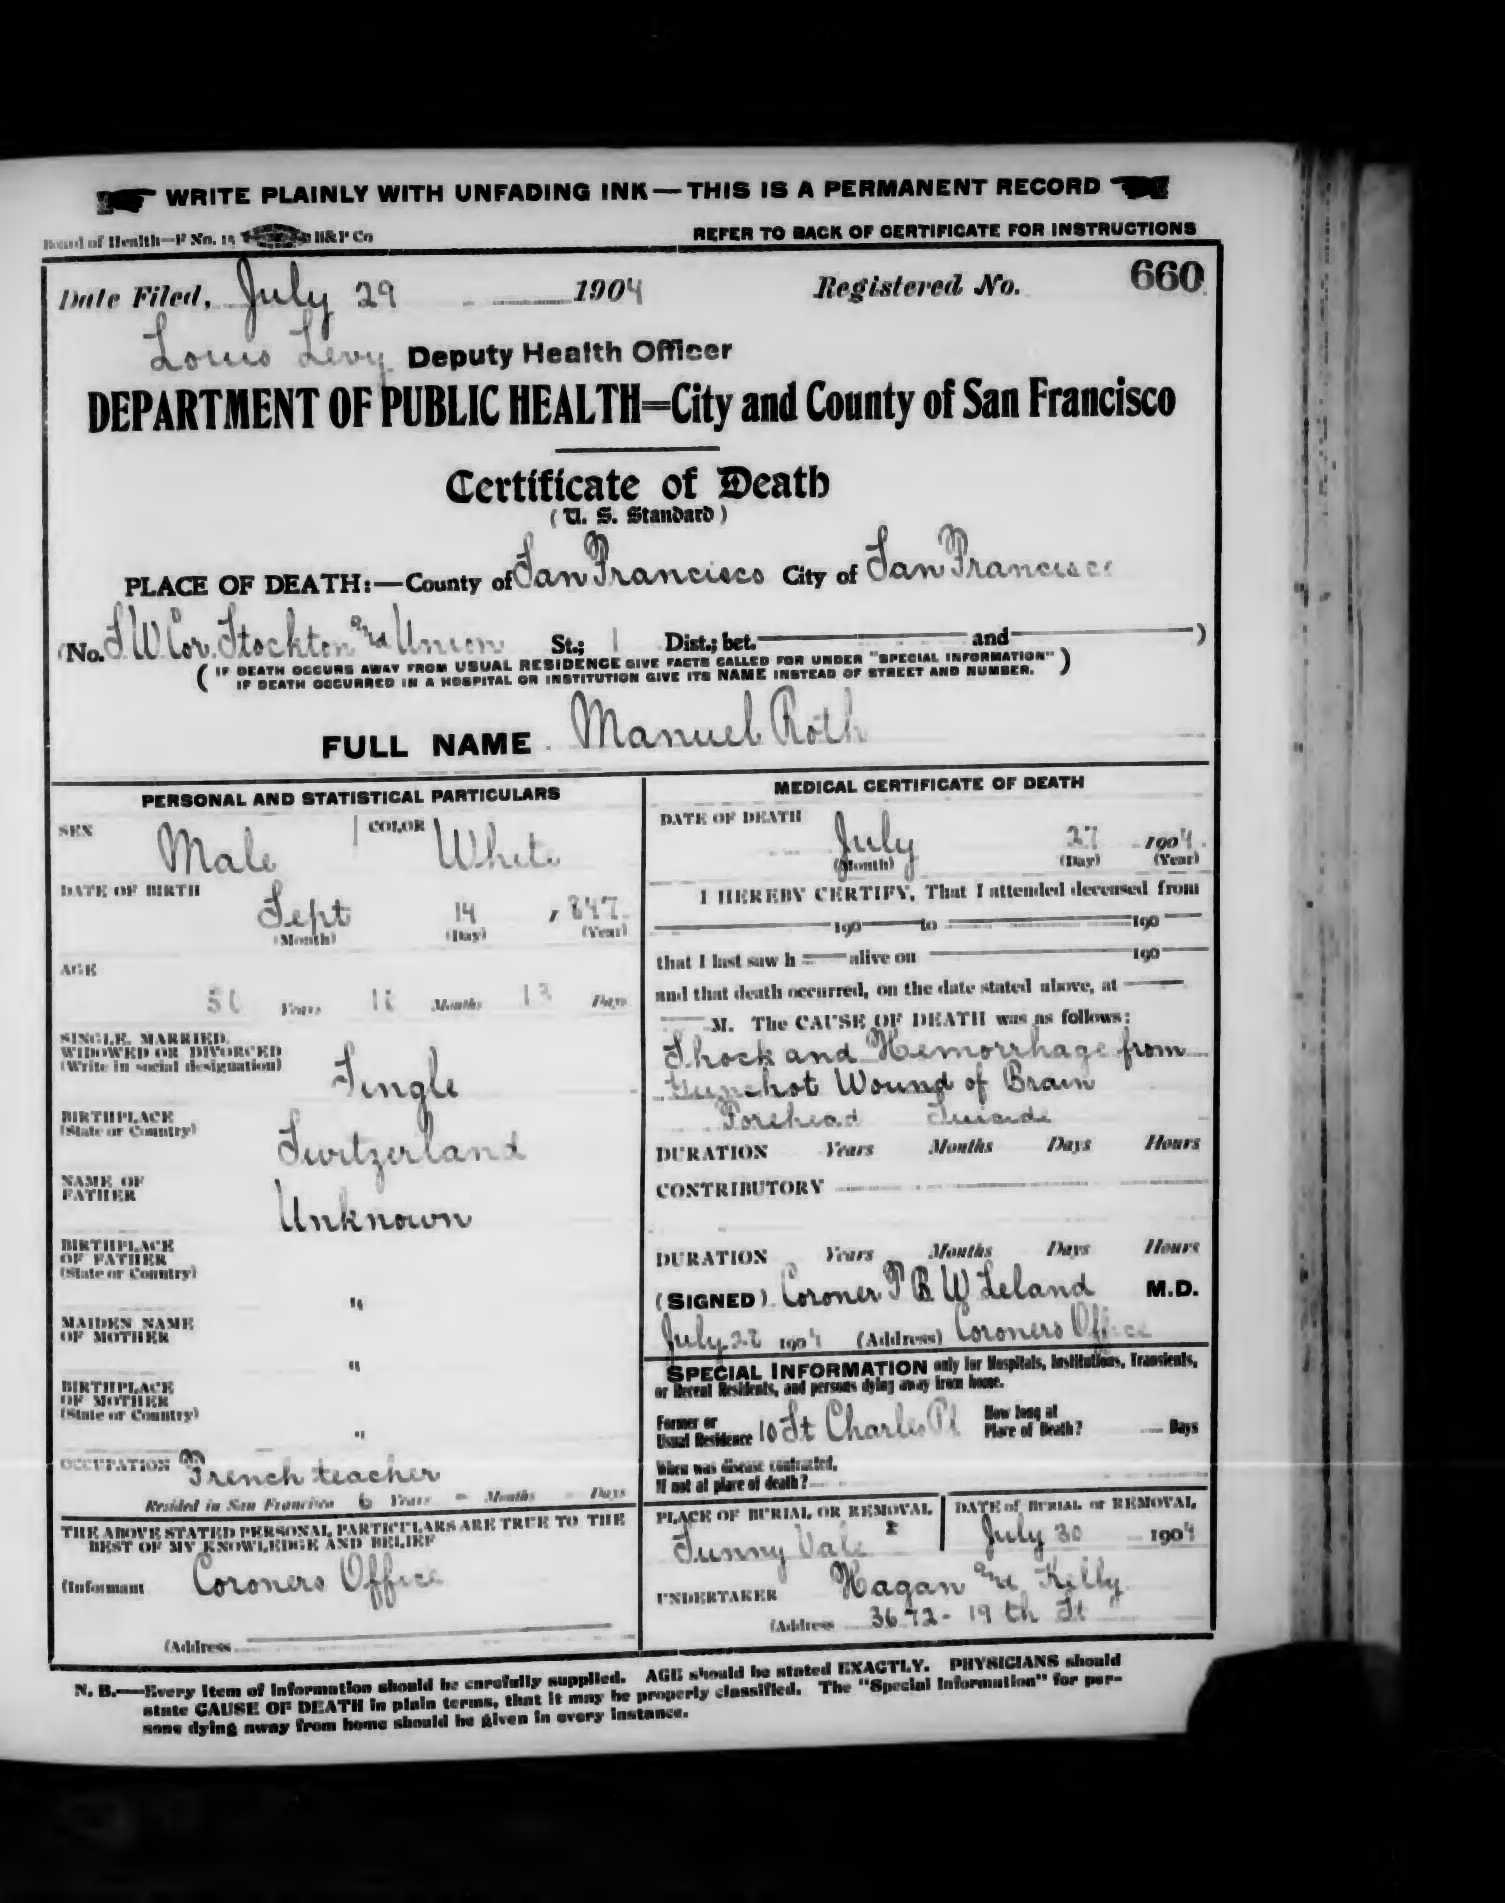 WRITE PLAINLY WITH UNFADING INK — THIS IS A PERMANENT RECORD
Board of Health—F No. 15 H&P Co
REFER TO BACK OF CERTIFICATE FOR INSTRUCTIONS
Date Filed, July 29 1904 Registered No. 660
Louis Levy Deputy Health Officer
DEPARTMENT OF PUBLIC HEALTH=City and County of San Francisco
Certificate of Death
(U. S. Standard)
PLACE OF DEATH:—County of San Francisco City of San Francisco
(No. S W Cor. Stockton and Union St.; 1 Dist.; bet. and )
(IF DEATH OCCURS AWAY FROM USUAL RESIDENCE GIVE FACTS CALLED FOR UNDER "SPECIAL INFORMATION"
IF DEATH OCCURRED IN A HOSPITAL OR INSTITUTION GIVE ITS NAME INSTEAD OF STREET AND NUMBER.)
FULL NAME Manuel Roth
PERSONAL AND STATISTICAL PARTICULARS
SEX Male COLOR White
DATE OF BIRTH
Sept 14, 1847
(Month) (Day) (Year)
AGE
Years Months 13 Days
SINGLE, MARRIED,
WIDOWED OR DIVORCED
(Write in social designation)
Single
BIRTHPLACE
(State or Country)
Switzerland
NAME OF
FATHER
Unknown
BIRTHPLACE
OF FATHER
(State or Country)
"
MAIDEN NAME
OF MOTHER
"
BIRTHPLACE
OF MOTHER
(State or Country)
"
OCCUPATION French teacher
Resided in San Francisco 6 Years - Months - Days
THE ABOVE STATED PERSONAL PARTICULARS ARE TRUE TO THE
BEST OF MY KNOWLEDGE AND BELIEF
(Informant Coroners Office
(Address
MEDICAL CERTIFICATE OF DEATH
DATE OF DEATH
July 27 1904
(Month) (Day) (Year)
I HEREBY CERTIFY, That I attended deceased from
190 to 190
that I last saw h alive on 190
and that death occurred, on the date stated above, at
M. The CAUSE OF DEATH was as follows:
Shock and Hemorrhage from
Gunshot Wound of Brain
Forehead Suicide
DURATION Years Months Days Hours
CONTRIBUTORY
DURATION Years Months Days Hours
(SIGNED) Coroner T B W Leland M.D.
July 28 1904 (Address) Coroners Office
SPECIAL INFORMATION only for Hospitals, Institutions, Transients,
or Recent Residents, and persons dying away from home.
Former or
Usual Residence 10 St Charles Pl
How long at
Place of Death? Days
When was disease contracted,
If not at place of death?
PLACE OF BURIAL OR REMOVAL
Sunny Vale
DATE of BURIAL or REMOVAL
July 30 1904
UNDERTAKER Hagan and Kelly
(Address 3672 - 19th St
N. B.—Every item of information should be carefully supplied. AGE should be stated EXACTLY. PHYSICIANS should
state CAUSE OF DEATH in plain terms, that it may be properly classified. The "Special Information" for per-
sons dying away from home should be given in every instance.